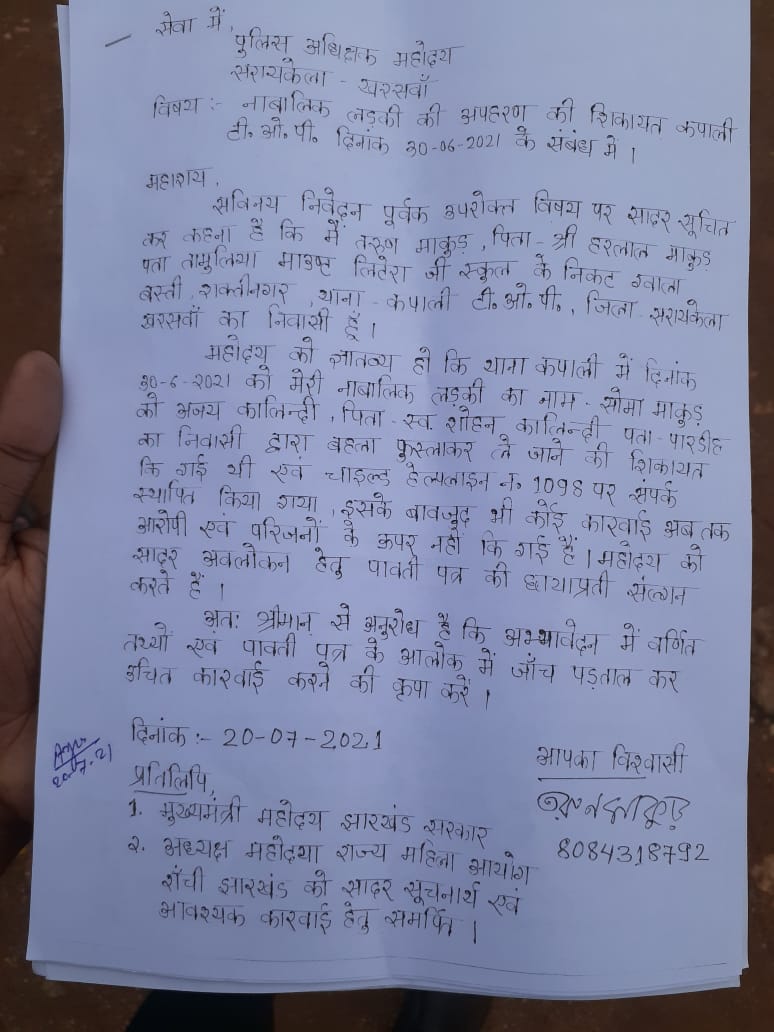 सेवा में,
पुलिस अधिक्षक महोदय
सरायकेला - खरसवाँ
विषय :- नाबालिक लड़की की अपहरण की शिकायत कपाली
टी. ओ. पी. दिनांक 30-06-2021 के संबंध में।
महाशय,
सविनय निवेदन पूर्वक उपरोक्त विषय पर सादर सूचित
कर कहना है कि मैं तरुण माकुड़, पिता - श्री हरलाल माकुड़
पता तामुलिया माउण्ट लिटेरा जी स्कुल के निकट ग्वाला
बस्ती, शक्तीनगर, थाना - कपाली टी. ओ. पी., जिला - सरायकेला
खरसवाँ का निवासी हूँ।
महोदय को ज्ञातव्य हो कि थाना कपाली में दिनांक
30-6-2021 को मेरी नाबालिक लड़की का नाम - सोमा माकुड़
को अजय कालिन्दी, पिता - स्व. शोहन कालिन्दी पता - पारडीह
का निवासी द्वारा बहला फुस्लाकर ले जाने की शिकायत
कि गई थी एवं चाइल्ड हेल्पलाइन न. 1098 पर संपर्क
स्थापित किया गया, इसके बावजुद भी कोई कारवाई अब तक
आरोपी एवं परिजनों के ऊपर नहीं कि गई हैं। महोदय को
सादर अवलोकन हेतु पावती पत्र की छायाप्रती संलग्न
करते हैं।
अतः श्रीमान् से अनुरोध है कि अभ्यावेदन में वर्णित
तथ्यों एवं पावती पत्र के आलोक में जाँच पड़ताल कर
उचित कारवाई करने की कृपा करें।
दिनांक :- 20-07-2021
20.7.21
आपका विश्वासी
তরুন মাকুড়
8084318792
प्रतिलिपि,
1. मुख्यमंत्री महोदय झारखंड सरकार
2. अध्यक्ष महोदया राज्य महिला आयोग
राँची झारखंड को सादर सूचनार्थ एवं
आवश्यक कारवाई हेतु समर्पित।